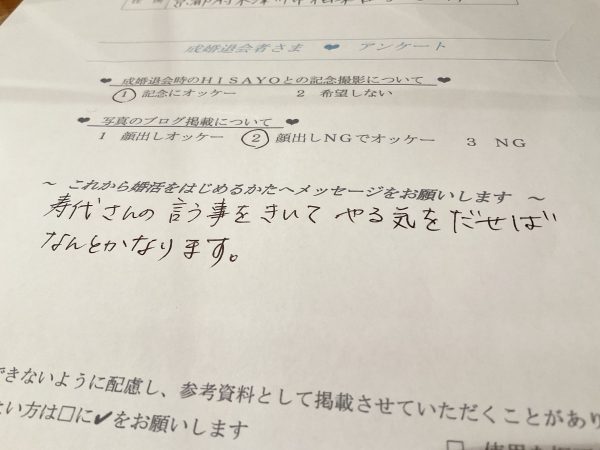 成婚退会者さま ❤ アンケート
❤ 成婚退会時のHISAYOとの記念撮影について ❤
1 記念にオッケー 2 希望しない
❤ 写真のブログ掲載について ❤
1 顔出しオッケー 2 顔出しNGでオッケー 3 NG
～ これから婚活をはじめるかたへメッセージをお願いします ～
寿代さんの言う事をきいてやる気をだせば
なんとかなります。
できないように配慮し、参考資料として掲載させていただくことがあり
い方は□に✔をお願いします